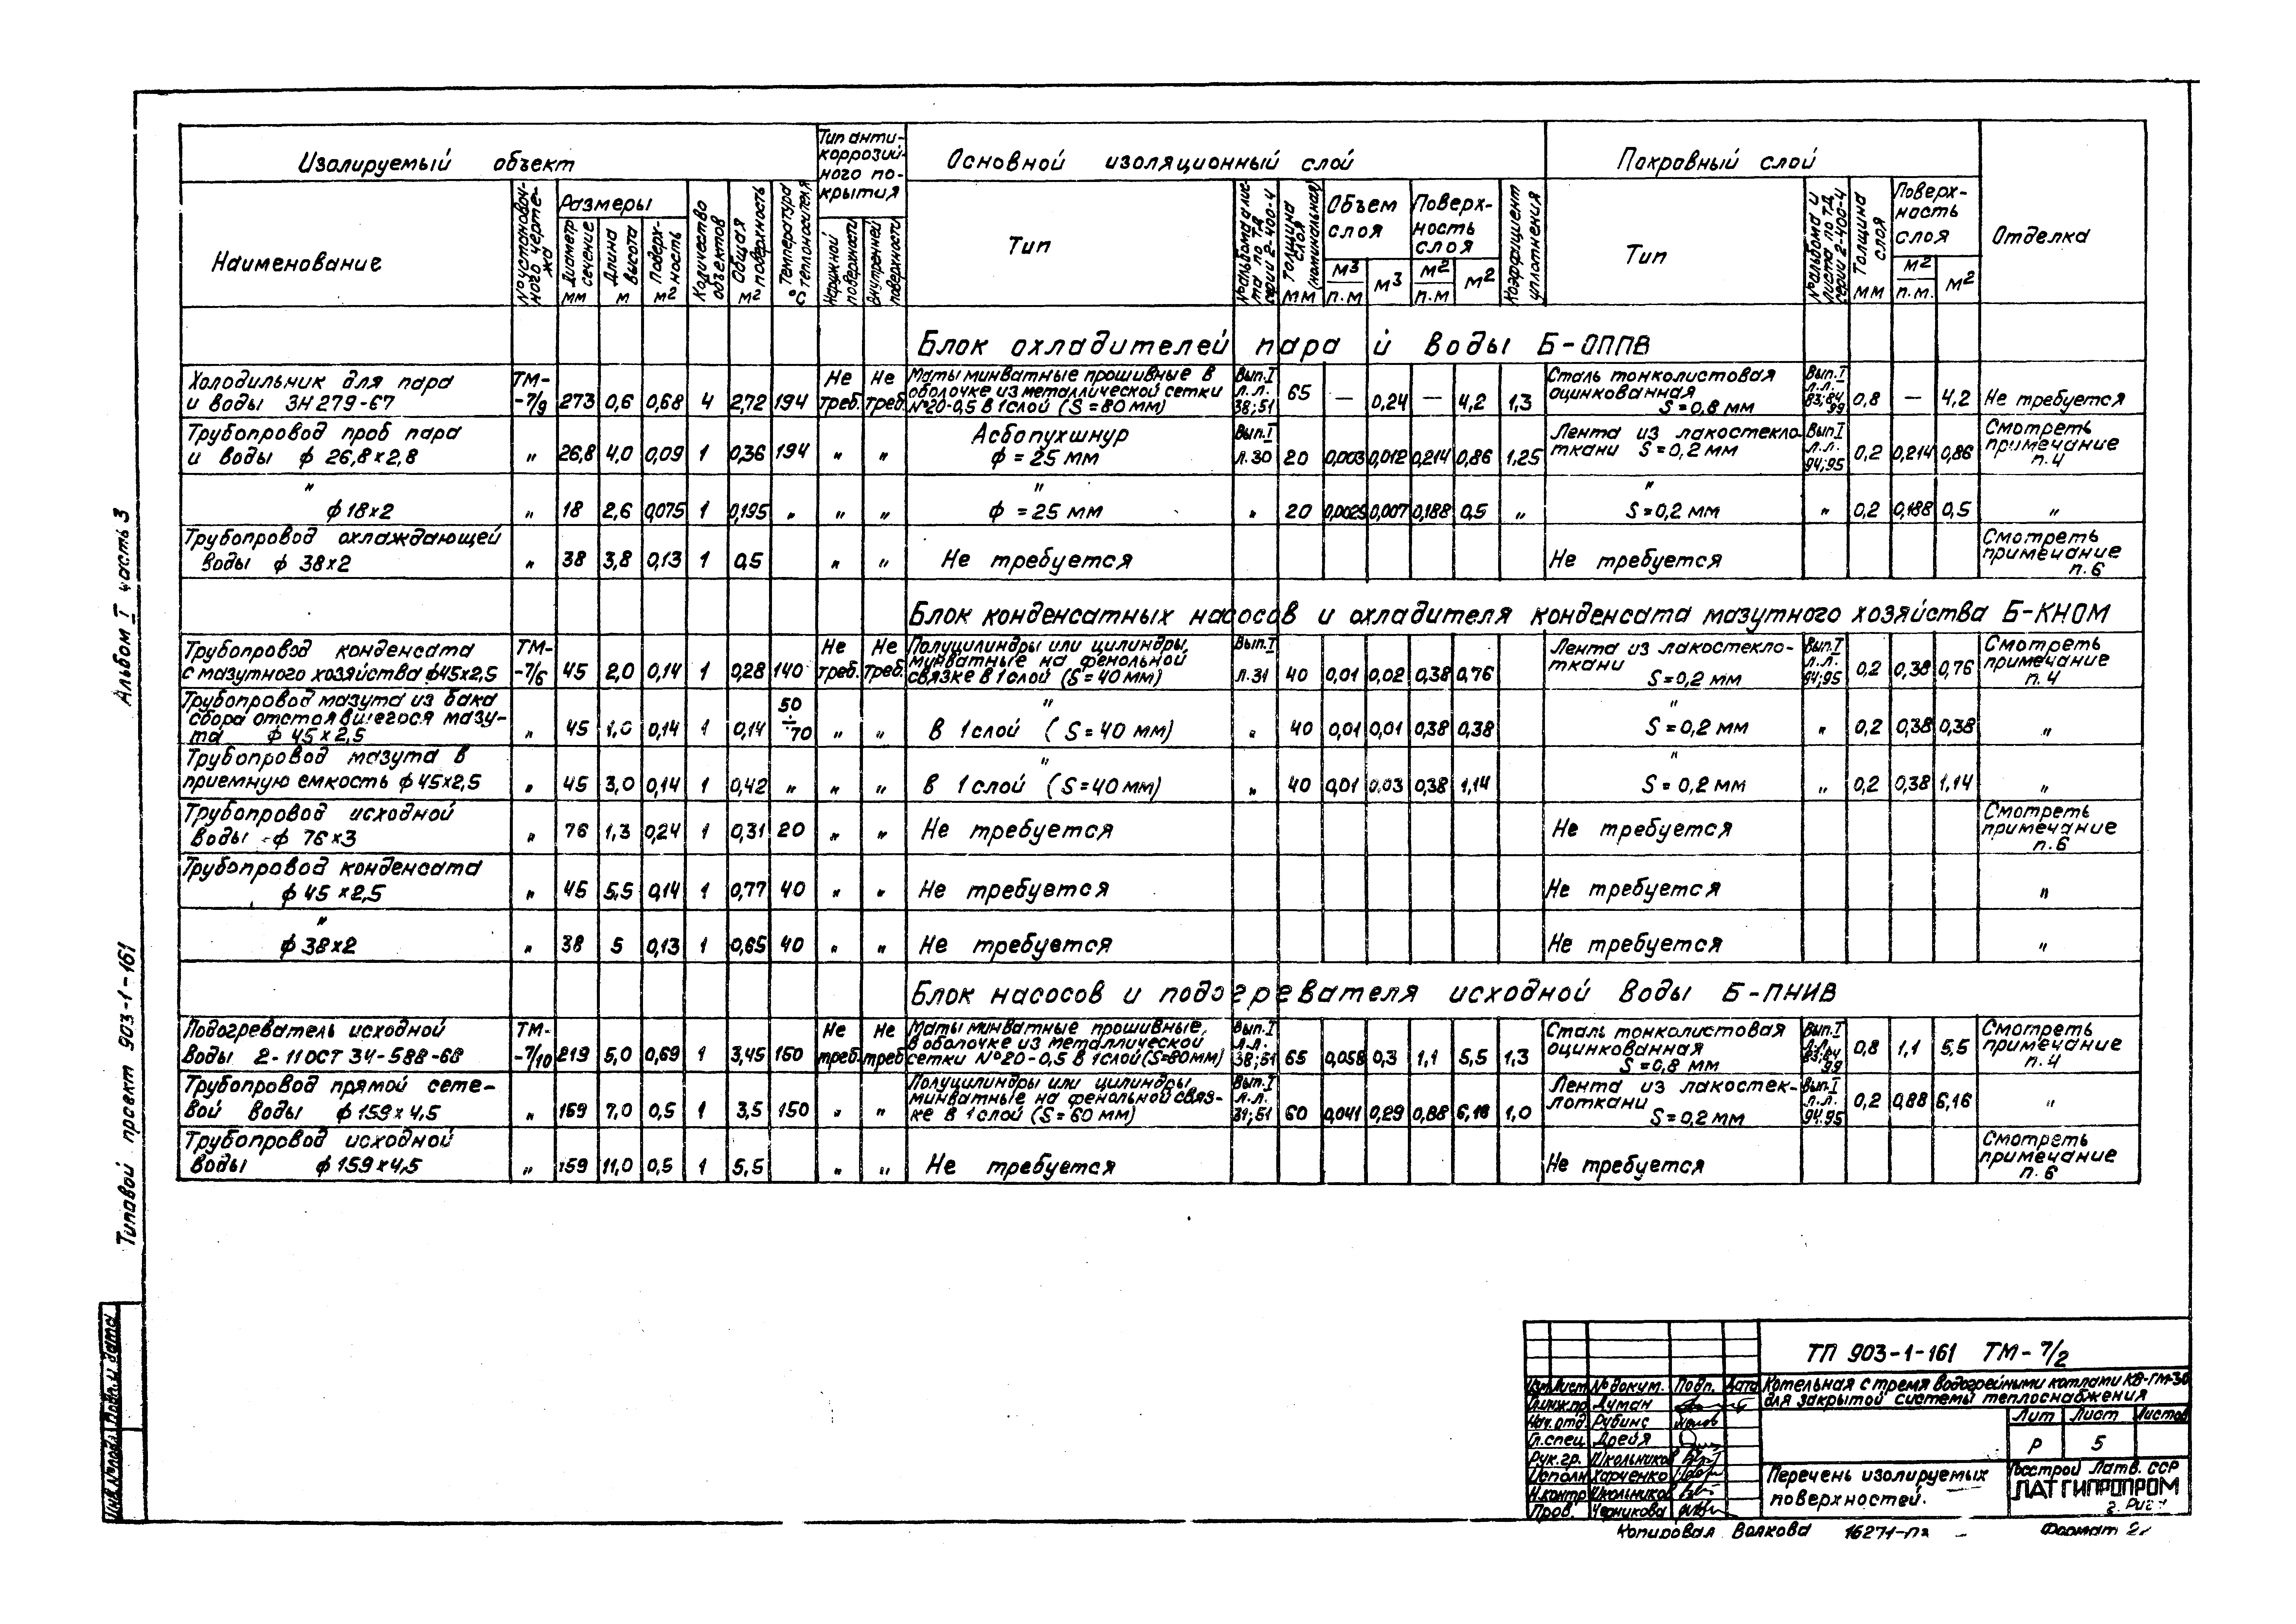 Альбом I часть 3
Типовой проект 903-1-161
Инв.№подл. Подп. и дата
Изолируемый объект
Тип антикоррозийного покрытия
Основной изоляционный слой
Покровный слой
Отделка
Наименование
№ установочного чертежа
Размеры
Диаметр сечение мм
Длина высота м
Поверхность м²
Количество объектов
Общая поверхность м²
Температура теплоносителя °С
Наружной поверхности
Внутренней поверхности
Тип
№ альбома листа по ТД серии 2-400-4
Толщина слоя (номинальная) мм
Объем слоя
м³/п.м
м³
Поверхность слоя
м²/п.м
м²
Коэффициент уплотнения
Тип
№ альбома и листа по ТД серии 2-400-4
Толщина слоя мм
Поверхность слоя
м²/п.м.
м²
Блок охладителей пара и воды Б-ОППВ
Холодильник для пара и воды 3Н279-67 ТМ-7/9 273 0,6 0,68 4 2,72 194 Не треб. Не треб. Маты минватные прошивные в оболочке из металлической сетки №20-0,5 в 1слой (S=80мм) Вып.I л.л. 38;51 65 — 0,24 — 4,2 1,3 Сталь тонколистовая оцинкованная S=0,8 мм Вып.I л.л. 83;84 99 0,8 — 4,2 Не требуется
Трубопровод проб пара и воды ф 26,8×2,8 " 26,8 4,0 0,09 1 0,36 194 " " Асбопухшнур ф = 25 мм Вып.I л.30 20 0,003 0,012 0,214 0,86 1,25 Лента из лакостеклоткани S=0,2 мм Вып I л.л. 94;95 0,2 0,214 0,86 Смотреть примечание п.4
" ф 18×2 " 18 2,6 0,075 1 0,195 " " " " ф = 25 мм " 20 0,0025 0,007 0,188 0,5 " " S=0,2 мм " 0,2 0,188 0,5 "
Трубопровод охлаждающей воды ф 38×2 " 38 3,8 0,13 1 0,5 " " Не требуется Не требуется Смотреть примечание п.6
Блок конденсатных насосов и охладителя конденсата мазутного хозяйства Б-КНОМ
Трубопровод конденсата с мазутного хозяйства ф45×2,5 ТМ-7/6 45 2,0 0,14 1 0,28 140 Не треб. Не треб. Полуцилиндры или цилиндры, минватные на фенольной связке в 1 слой (S=40мм) Вып.I л.31 40 0,01 0,02 0,38 0,76 Лента из лакостеклоткани S=0,2 мм Вып.I л.л. 94;95 0,2 0,38 0,76 Смотреть примечание п.4
Трубопровод мазута из бака сбора отстоявшегося мазута ф 45×2,5 " 45 1,0 0,14 1 0,14 50÷70 " " " в 1слой (S=40 мм) " 40 0,01 0,01 0,38 0,38 " S=0,2 мм " 0,2 0,38 0,38 "
Трубопровод мазута в приемную емкость ф 45×2,5 " 45 3,0 0,14 1 0,42 " " " " в 1слой (S=40мм) " 40 0,01 0,03 0,38 1,14 " S=0,2 мм " 0,2 0,38 1,14 "
Трубопровод исходной воды ф 76×3 " 76 1,3 0,24 1 0,31 20 " " Не требуется Не требуется Смотреть примечание п.6
Трубопровод конденсата ф 45×2,5 " 45 5,5 0,14 1 0,77 40 " " Не требуется Не требуется "
" ф 38×2 " 38 5 0,13 1 0,65 40 " " Не требуется Не требуется "
Блок насосов и подогревателя исходной воды Б-ПНИВ
Подогреватель исходной воды 2-11ОСТ 34-588-68 ТМ-7/10 219 5,0 0,69 1 3,45 150 Не треб. Не треб Маты минватные прошивные, в оболочке из металлической сетки №20-0,5 в 1слой(S=80мм) Вып.I л.л. 38;51 65 0,058 0,3 1,1 5,5 1,3 Сталь тонколистовая оцинкованная S=0,8 мм Вып.I л.л. 83;84 99 0,8 1,1 5,5 Смотреть примечание п.4
Трубопровод прямой сетевой воды ф 159×4,5 " 159 7,0 0,5 1 3,5 150 " " Полуцилиндры или цилиндры минватные на фенольной связке в 1слой (S=60мм) Вып.I л.л. 31;51 60 0,041 0,29 0,88 6,16 1,0 Лента из лакостеклоткани S=0,2 мм Вып.I л.л. 94.95 0,2 0,88 6,16 "
Трубопровод исходной воды ф 159×4,5 " 159 11,0 0,5 1 5,5 " " Не требуется Не требуется Смотреть примечание п.6
ТП 903-1-161 ТМ-7/2
Котельная с тремя водогрейными котлами КВ-ГМ-30
для закрытой системы теплоснабжения
Изм. Лист №докум. Подп. Дата
Гл.инж.пр Думан
Нач.отд. Рубинс
Гл.спец Дрейя
Рук.гр. Школьников
Исполн Харченко
Н.контр Школьников
Пров. Черникова
Лит Лист Листов
Р 5
Перечень изолируемых
поверхностей.
Госстрой Латв. ССР
ЛАТГИПРОПРОМ
г. Рига
Копировал Волкова 16271-
Формат 2